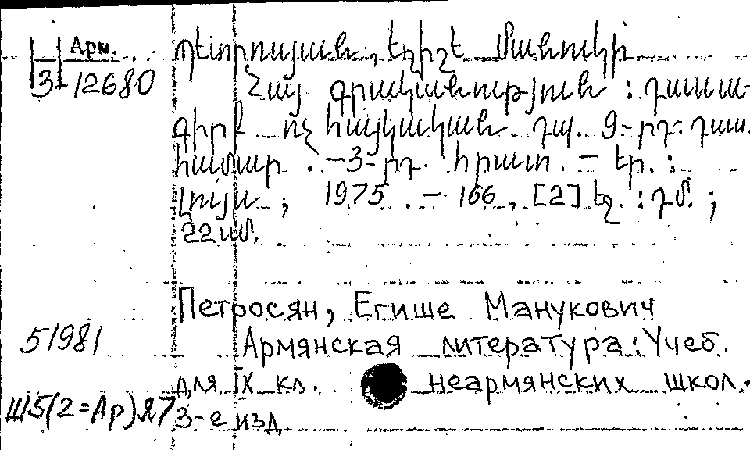 Арм. Պետրոսյան, Եղիշե Մանուկի
3 12680 Հայ գրականություն : դասա-
գիրք ոչ հայկական դպ. 9-րդ դաս.
համար . - 3-րդ. հրատ. - Եր. :
Լույս , 1975 . - 166 , [2] էջ : դմ. ;
22 սմ.
Петросян, Егише Манукович
51981 Армянская литература : Учеб.
для IX кл. неармянских школ.
Ш5(2=Ар)я7 3-е изд